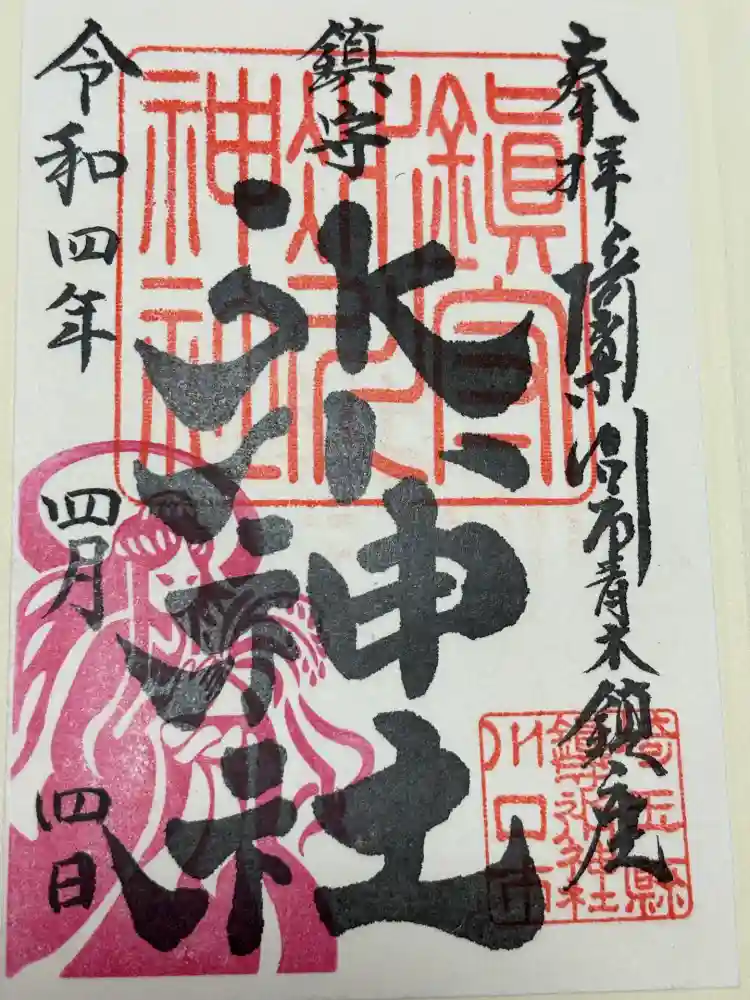 奉拝
川口市青木鎮座
鎮守
氷川神社
令和四年
四月
四日
鎮守
氷川
神社
埼玉縣
鎮守氷川神社
川口市